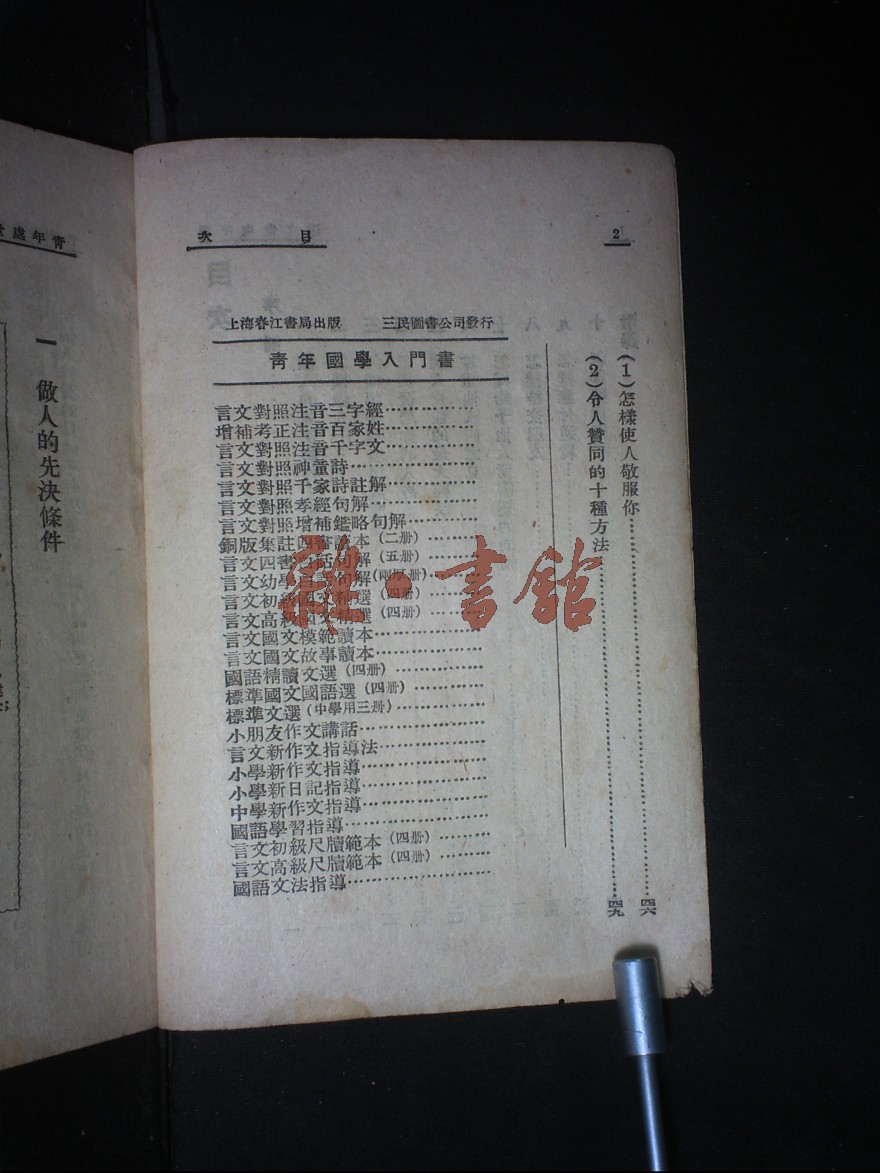 2
目次
(1)怎樣使人敬服你…………四六
(2)令人贊同的十種方法…………四九
上海春江書局出版 三民圖書公司發行
靑年國學入門書
言文對照注音三字經…………
增補考正注音百家姓…………
言文對照注音千字文…………
言文對照神童詩…………
言文對照千家詩註解…………
言文對照孝經句解…………
言文對照增補鑑略句解…………
銅版集註四書讀本(二册)…………
言文四書白話句解(五册)…………
言文幼學白話句解(兩厚册)…………
言文初級國文精選(四册)…………
言文高級國文精選(四册)…………
言文國文模範讀本…………
言文國文故事讀本…………
國語精讀文選(四册)…………
標準國文國語選(四册)…………
標準文選(中學用三册)…………
小朋友作文講話…………
言文新作文指導法…………
小學新作文指導…………
小學新日記指導…………
中學新作文指導…………
國語學習指導…………
言文初級尺牘範本(四册)…………
言文高級尺牘範本(四册)…………
國語文法指導…………
靑年處世
一 做人的先決條件
雜·書館